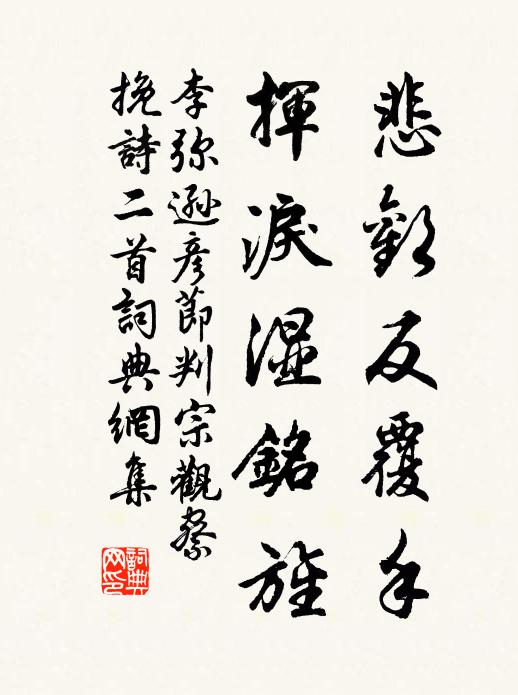 悲歡反覆手
揮淚濕銘旌
李弥遜彦節判宗觀察
挽詩二首詞典網集
詞典網印